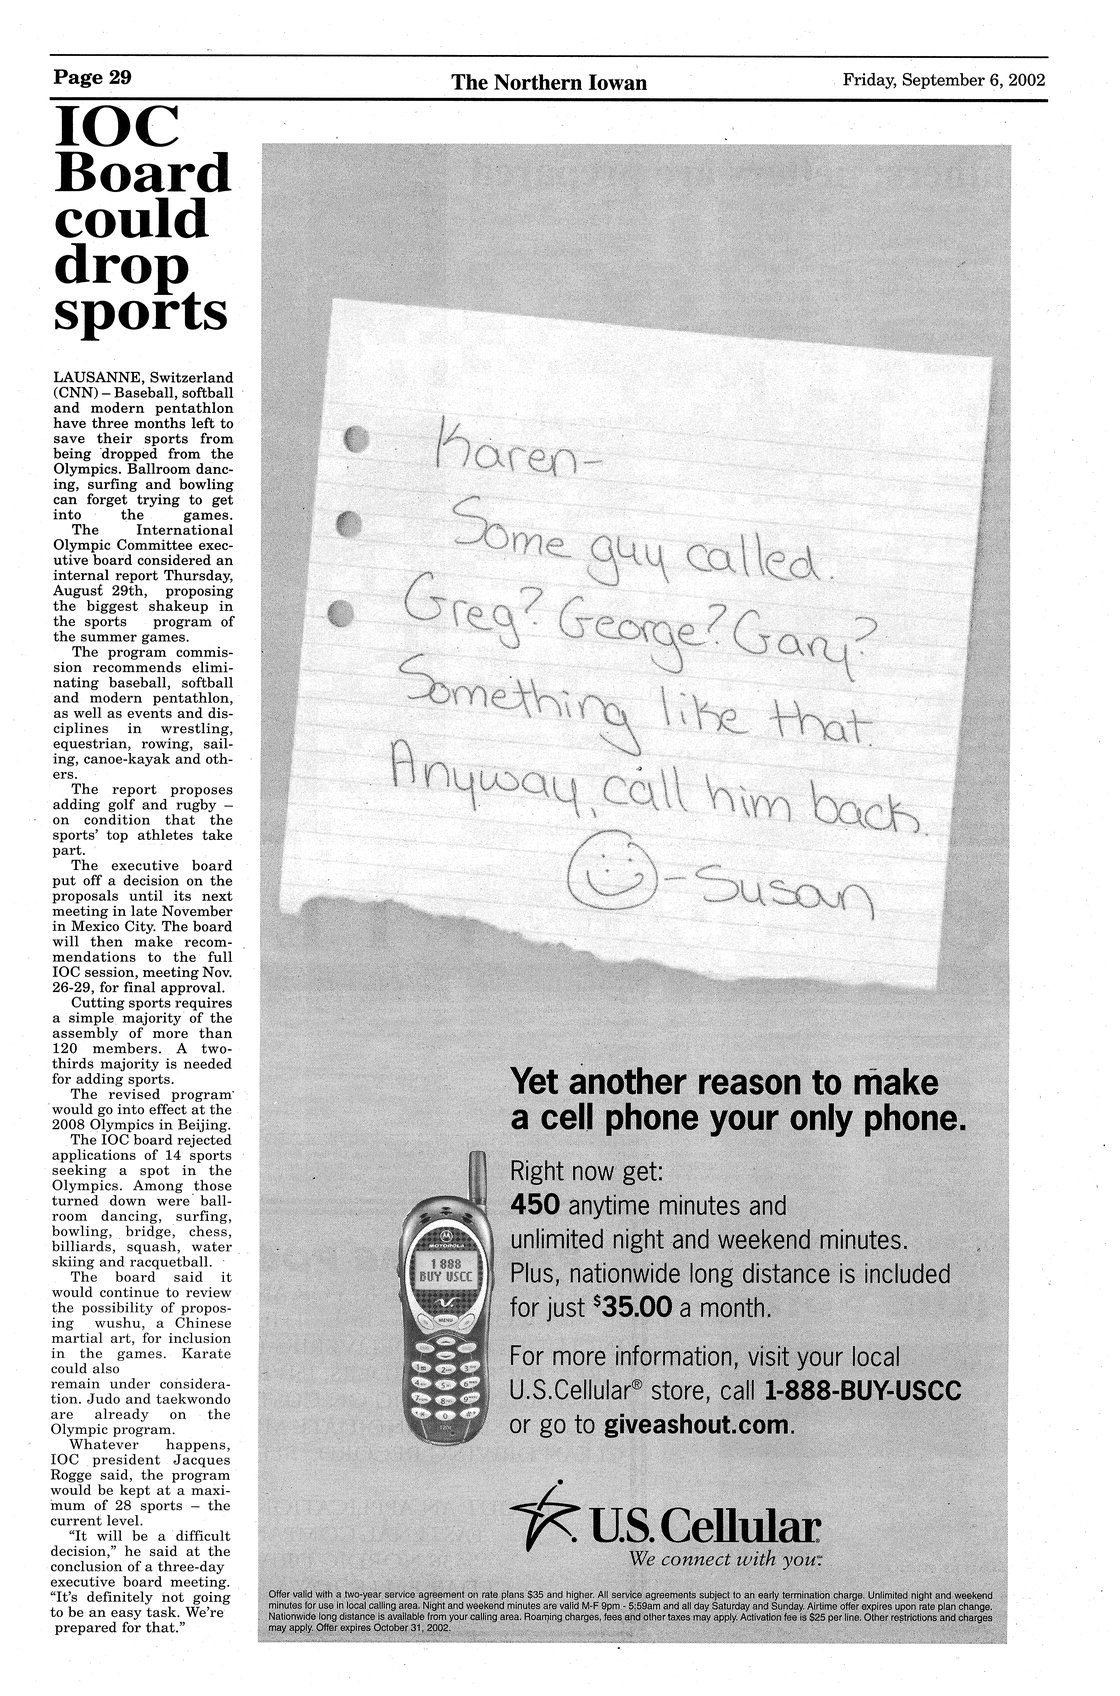 Page 29
The Northern Iowan
Friday, September 6, 2002
IOC
Board
could
drop
sports
LAUSANNE, Switzerland
(CNN) – Baseball, softball
and modern pentathlon
have three months left to
save their sports from
being dropped from the
Olympics. Ballroom danc-
ing, surfing and bowling
can forget trying to get
into the games.
The International
Olympic Committee exec-
utive board considered an
internal report Thursday,
August 29th, proposing
the biggest shakeup in
the sports program of
the summer games.
The program commis-
sion recommends elimi-
nating baseball, softball
and modern pentathlon,
as well as events and dis-
ciplines in wrestling,
equestrian, rowing, sail-
ing, canoe-kayak and oth-
ers.
The report proposes
adding golf and rugby –
on condition that the
sports' top athletes take
part.
The executive board
put off a decision on the
proposals until its next
meeting in late November
in Mexico City. The board
will then make recom-
mendations to the full
IOC session, meeting Nov.
26-29, for final approval.
Cutting sports requires
a simple majority of the
assembly of more than
120 members. A two-
thirds majority is needed
for adding sports.
The revised program
would go into effect at the
2008 Olympics in Beijing.
The IOC board rejected
applications of 14 sports
seeking a spot in the
Olympics. Among those
turned down were ball-
room dancing, surfing,
bowling, bridge, chess,
billiards, squash, water
skiing and racquetball.
The board said it
would continue to review
the possibility of propos-
ing wushu, a Chinese
martial art, for inclusion
in the games. Karate
could also
remain under considera-
tion. Judo and taekwondo
are already on the
Olympic program.
Whatever happens,
IOC president Jacques
Rogge said, the program
would be kept at a maxi-
mum of 28 sports – the
current level.
"It will be a difficult
decision," he said at the
conclusion of a three-day
executive board meeting.
"It's definitely not going
to be an easy task. We're
prepared for that."
Karen-
Some guy called.
Greg? George? Gary?
Something like that.
Anyway, call him back.
-Susan
Yet another reason to make
a cell phone your only phone.
Right now get:
450 anytime minutes and
unlimited night and weekend minutes.
Plus, nationwide long distance is included
for just $35.00 a month.
For more information, visit your local
U.S.Cellular® store, call 1-888-BUY-USCC
or go to giveashout.com.
MOTOROLA
1 888
BUY USCC
MENU
U.S. Cellular
We connect with you.
Offer valid with a two-year service agreement on rate plans $35 and higher. All service agreements subject to an early termination charge. Unlimited night and weekend
minutes for use in local calling area. Night and weekend minutes are valid M-F 9pm - 5:59am and all day Saturday and Sunday. Airtime offer expires upon rate plan change.
Nationwide long distance is available from your calling area. Roaming charges, fees and other taxes may apply. Activation fee is $25 per line. Other restrictions and charges
may apply. Offer expires October 31, 2002.